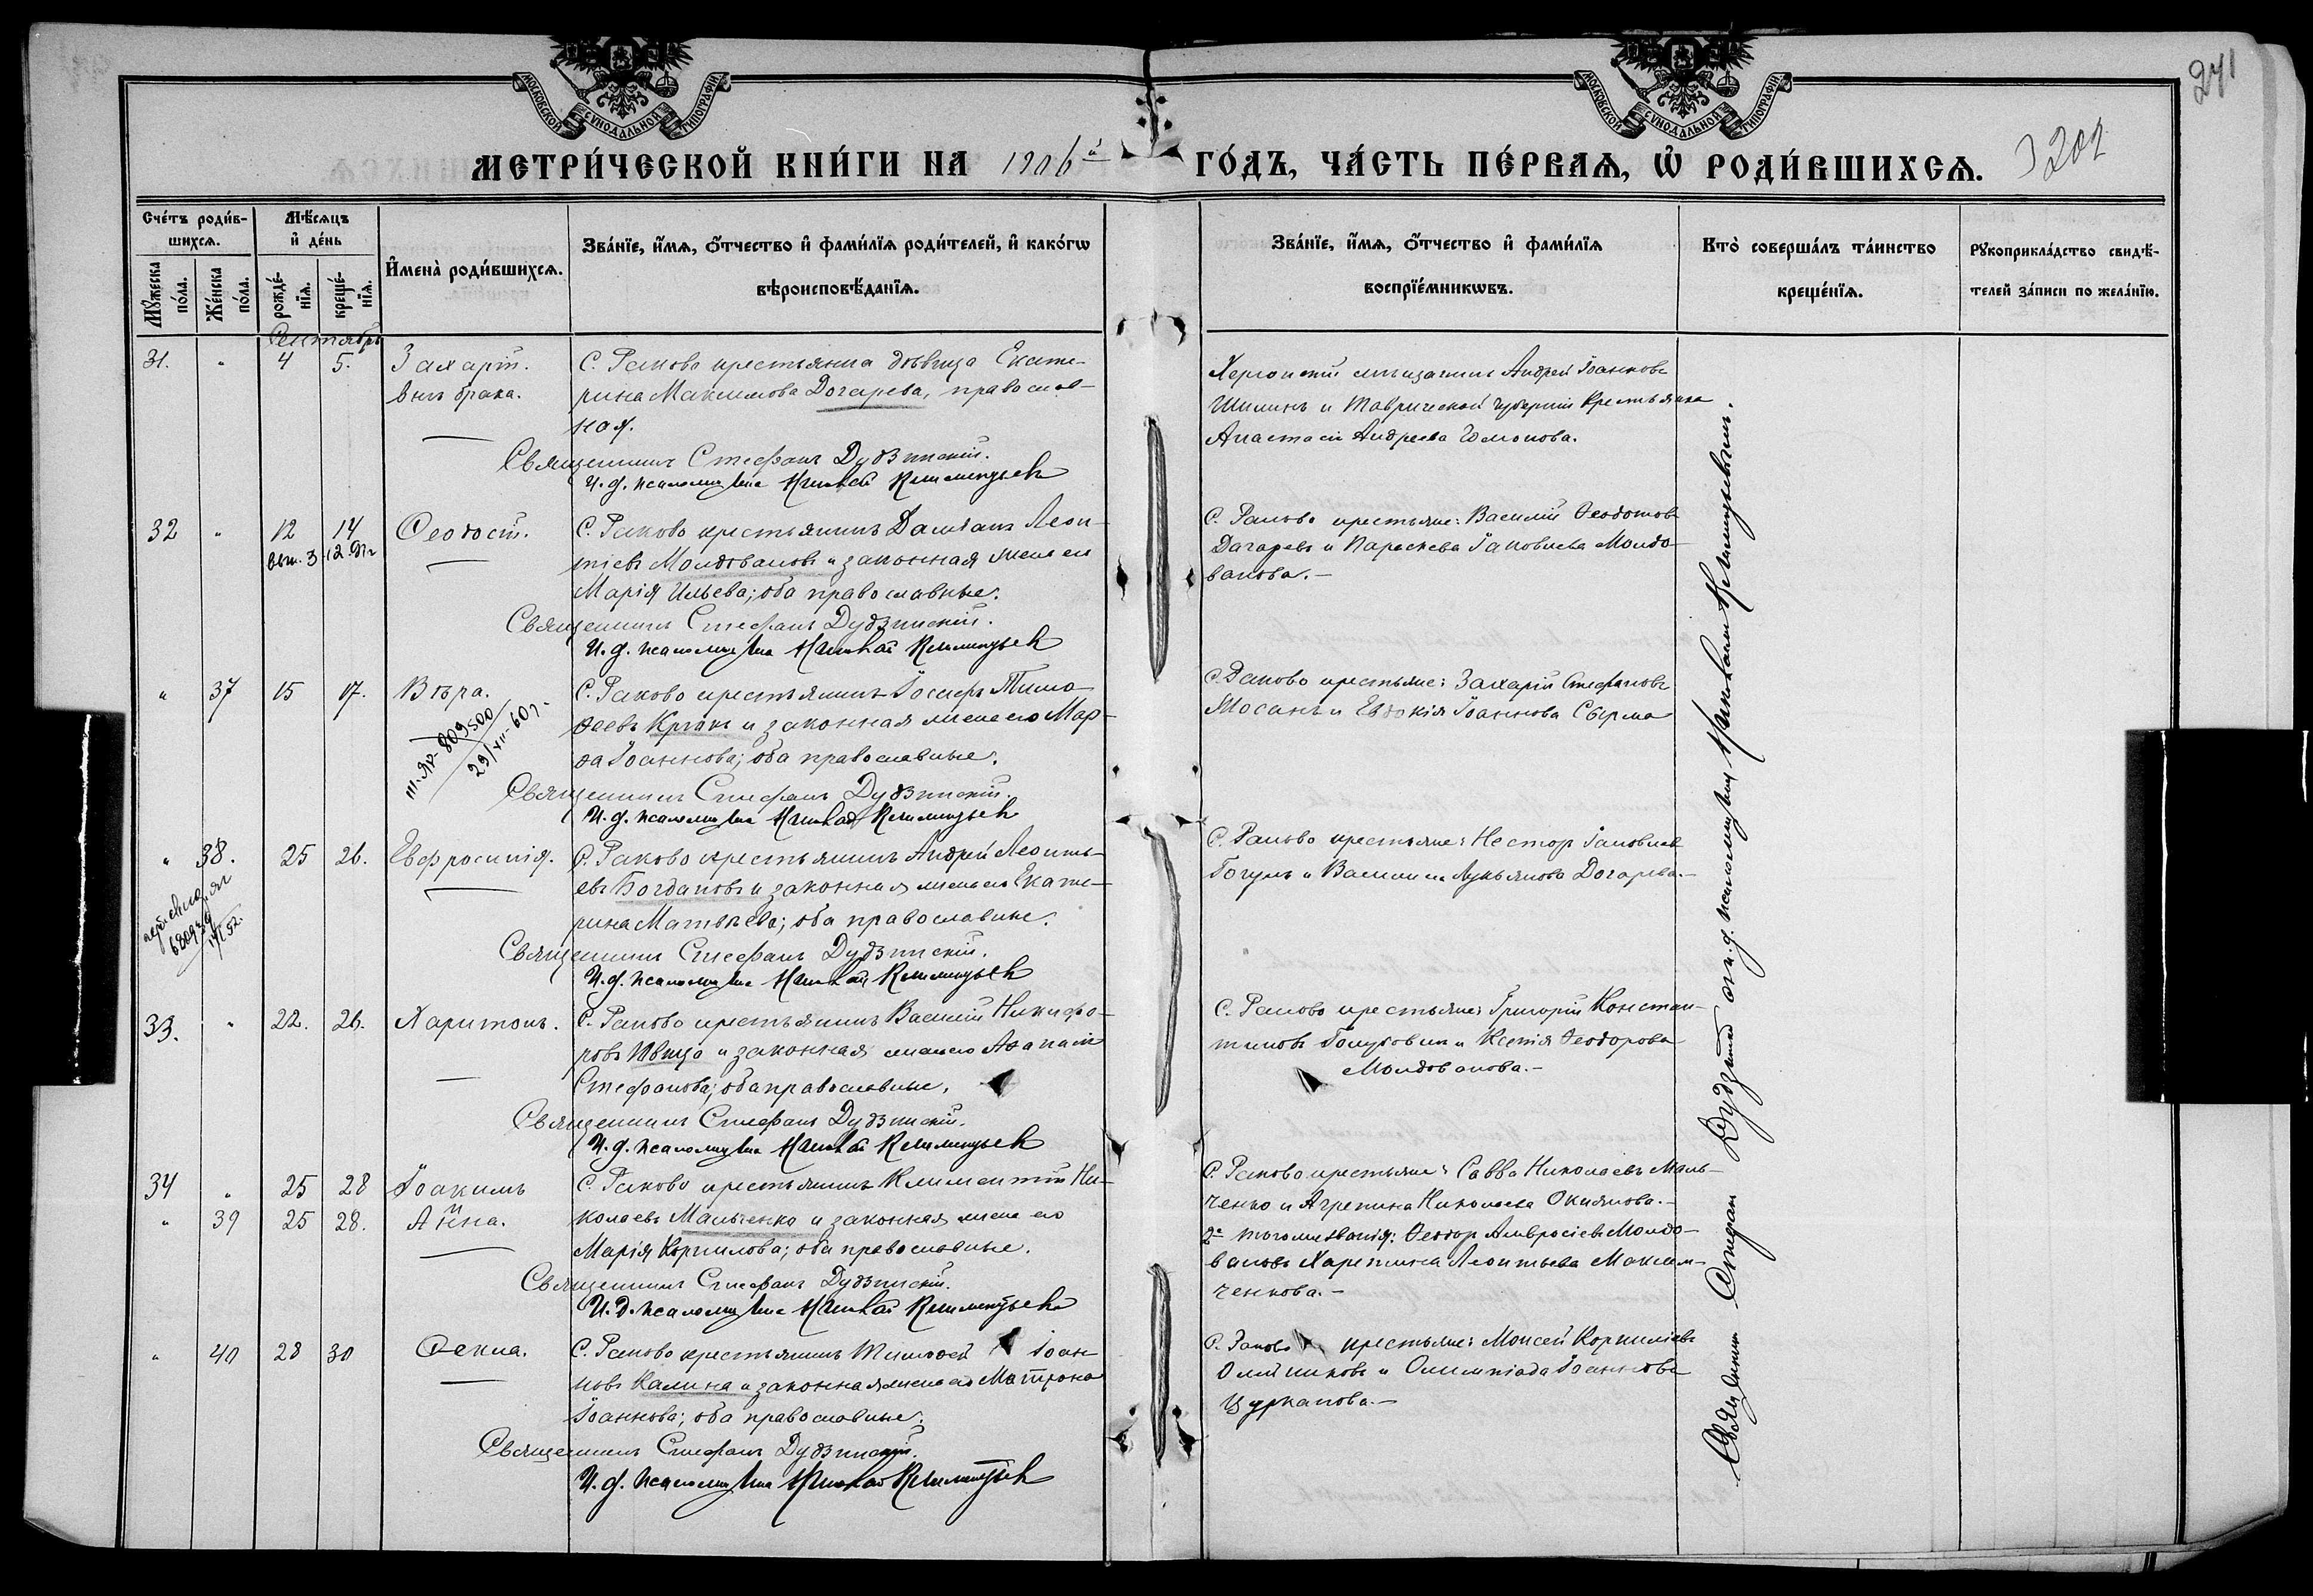 МОСКОВСКОЙ СѴНОДАЛЬНОЙ ТИПОГРАФІИ
МОСКОВСКОЙ СѴНОДАЛЬНОЙ ТИПОГРАФІИ
241
202
МЕТРИ́ЧЕСКОЙ КНИ́ГИ НА 1906й ГО́ДЪ, ЧА́СТЬ ПЕ́РВАѦ, Ѡ҆ РОДИ́ВШИХСѦ.
Сче́тъ роди́в-
шихсѧ.
Мꙋ́жеска по́ла.
Же́нска по́ла.
Мѣ́сѧцъ
и҆ де́нь
рожде́-
нїѧ.
креще́-
нїѧ.
И҆мена̀ роди́вшихсѧ.
Зва́нїе, и҆́мѧ, ѻ҆́тчество и҆ фами́лїѧ роди́телей, и҆ како́гѡ
вѣроисповѣ́данїѧ.
Зва́нїе, и҆́мѧ, ѻ҆́тчество и҆ фами́лїѧ
воспрїе́мникѡвъ.
Кто̀ соверша́лъ та́инство
креще́нїѧ.
Рꙋкоприкла́дство свидѣ́-
телей за́писи по жела́нїю.
Сентябрь
31. " 4 5. Захарій.
внѣ брака.
С. Раково крестьянка дѣвица Екате-
рина Максимова Догарева, православ-
ная.
Священникъ Стефанъ Дудзинскій.
И. д. псаломщика Николай Климентьевъ
Херсонскій мѣщанинъ Андрей Іоанновъ
Шилинъ и Таврической губерніи крестьянка
Анастасія Андреева
32 " 12 14 Ѳеодосій.
С. Раково крестьянинъ Даміанъ Леон-
тіевъ Молдовановъ и законная жена его
Марія Ильева; оба православные.
Священникъ Стефанъ Дудзинскій.
И. д. псаломщика Николай Климентьевъ
С. Раково крестьяне: Василій Ѳеодотовъ
Дагаревъ и Параскева Іаковлева Молдо-
ванова.-
" 37 15 17. Вѣра.
809500
29/VII-60г.
С. Раково крестьянинъ Іосифъ Тимо-
ѳеевъ и законная жена его Мар-
ѳа Іоаннова; оба православные.
Священникъ Стефанъ Дудзинскій.
И. д. псаломщика Николай Климентьевъ
С. Раково крестьяне: Захарій Стефановъ
Мосанъ и Евдокія Іоаннова Сырма
" 38. 25 26. Евфросинія.
С. Раково крестьянинъ Андрей Леонть-
евъ Богдановъ и законная жена его Екате-
рина Матвѣева; оба православные.
Священникъ Стефанъ Дудзинскій.
И. д. псаломщика Николай Климентьевъ
С. Раково крестьяне: Несторъ Іаковлевъ
и Василиса Лукьянова Догарева.-
33. " 22. 26. Харитонъ.
С. Раково крестьянинъ Василій Никифо-
ровъ Ивица и законная жена его Агапія
Стефанова; оба православные.
Священникъ Стефанъ Дудзинскій.
И. д. псаломщика Николай Климентьевъ
С. Раково крестьяне: Григорій Констан-
тиновъ и Ксенія Ѳеодорова
Молдованова.-
34 " 25 28 Іоакимъ
" 39 25 28. Анна.
С. Раково крестьянинъ Климентій Ни-
колаевъ Мальченко и законная жена его
Марія Корнилова; оба православные.
Священникъ Стефанъ Дудзинскій.
И. д. псаломщика Николай Климентьевъ
С. Раково крестьяне: Савва Николаевъ Маль-
ченко и Агрепина Николаева Окиянова.-
2е того же званія: Ѳеодоръ Амвросіевъ Молдо-
вановъ Харитина Леонтьева Максим-
ченкова.-
" 40 28 30 Ѳекла.
С. Раково крестьянинъ Тимоѳей Іоан-
новъ Калина и законная жена его Матрона
Іоаннова; оба православные.
Священникъ Стефанъ Дудзинскій.
И. д. псаломщика Николай Климентьевъ
С. Раково крестьяне: Моисей Корниліевъ
Олійниковъ и Олимпіада Іоаннова
Цурканова.-
Священникъ Стефанъ Дудзинскій съ и. д. псаломщика Николаемъ Климентьевымъ.